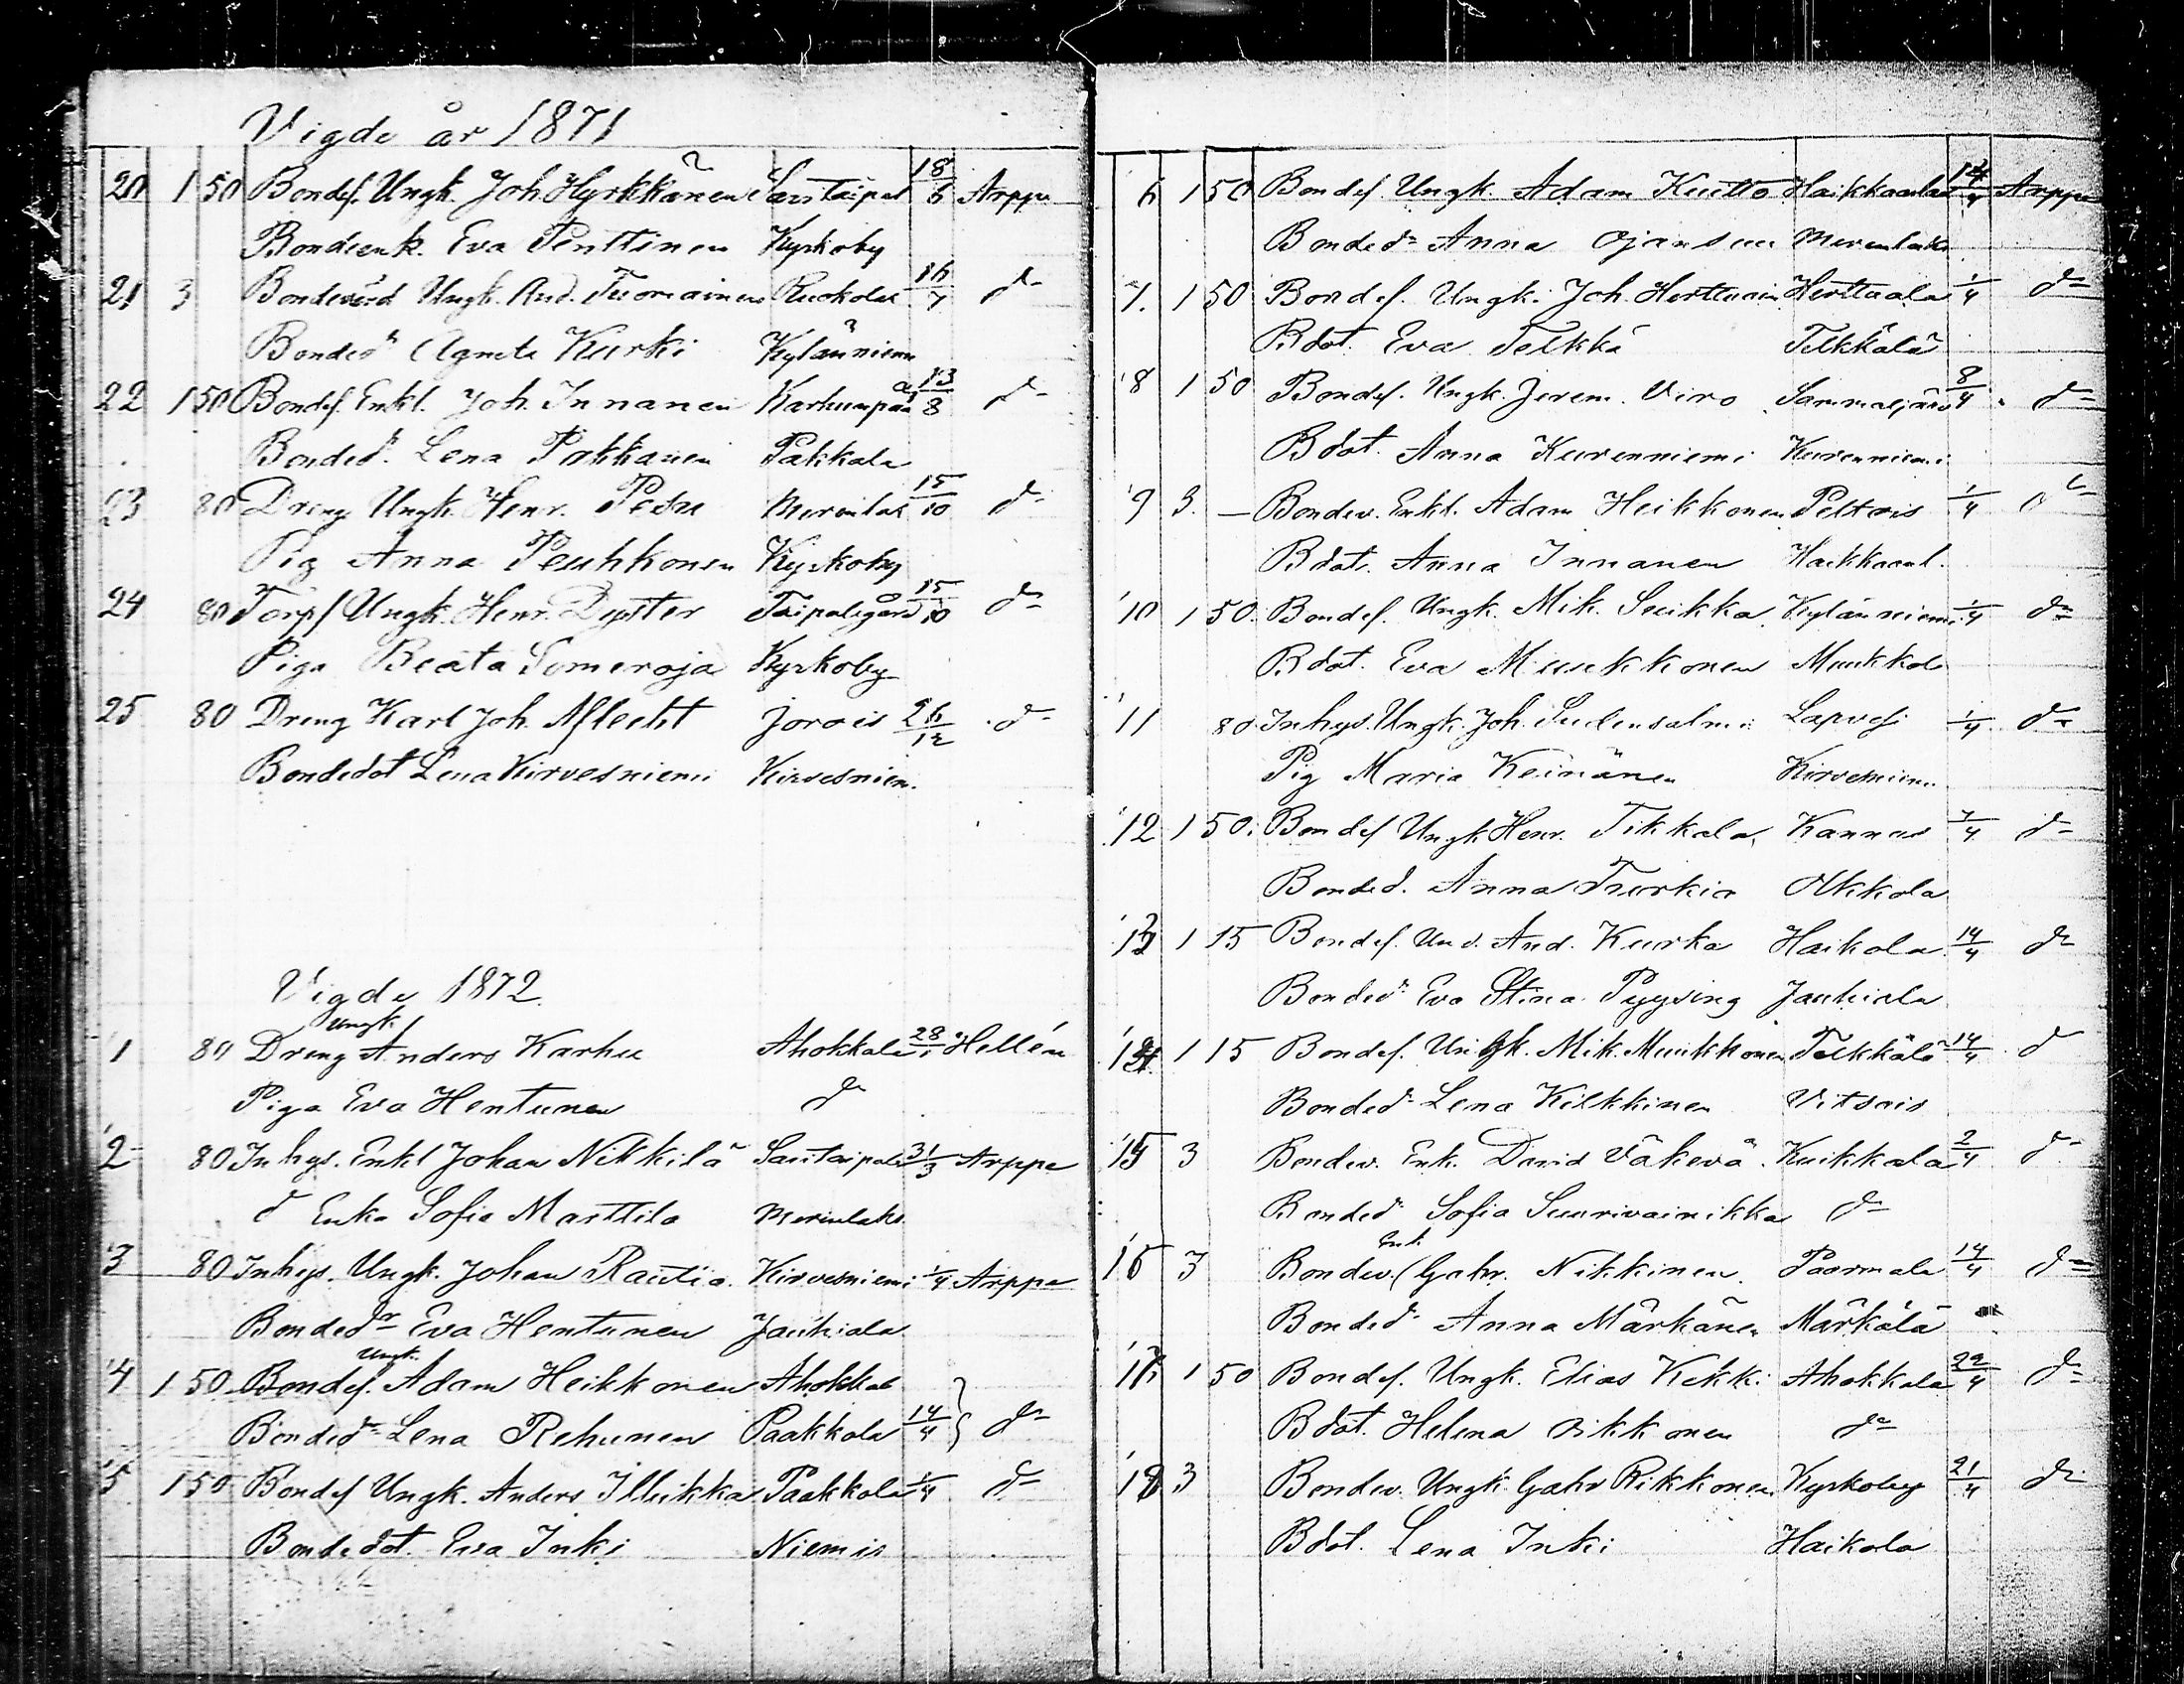 Vigde år 1871
20 1 50 Bondes. Ungk. Joh. Hyrkkänen Savitaipal 18/6 Arppe
Bondeenk. Eva Penttinen Kyrkoby
21 3 Ungk. And. Tuomainen Ruokolax 16/7 d-
Bonded- Agneta Kurki Kylänniem
22 1 50 Bondes. Enkl. Joh. Innanen Karhunpää 13/8 d-
Bonded. Lena Pakkanen Pakkala
23 80 Dreng Ungk. Henr. Merenlax 15/10 d-
Pig Anna Peuhkonen Kyrkoby
24 80 Torps Ungk. Henr. Dyster Taipalegård 15/10 d-
Piga Beata Someroja Kyrkoby
25 80 Dreng Karl Joh. Aflecht Jorois 26/12 d-
Bondedot Lena Kirvesniemi Kirvesniem.
Vigde 1872
1 80 Dreng Ungk Anders Karhu Ahokkala 28/1 Hellén
Piga Eva Hentunen d-
2 80 Inhys. Enkl Johan Nikkilä Savitaipale 31/3 Arppe
d Enka Sofia Marttila Merenlaks
3 80 Inhys. Ungk. Johan Rautia Kirvesniemi 1/4 Arppe
Bonded- Eva Hentunen Jauhiala
4 1 50 Bondes. Ungk. Adam Heikkonen Ahokkal
Bonded- Lena Rehunen Paakkola 14/4 } d-
5 1 50 Bondes Ungk. Anders Illukka Paakkola 1/4 d-
Bondedot. Eva Inki Niemis
6 1 50 Bondes. Ungk. Adam Kuitto Haikkaanlax Arppe
Bonded- Anna Ojansuu Merenlaks
7. 1 50 Bondes. Ungk. Joh. Herttuain Herttuala 1/4 d-
Bdot. Eva Telkkä Telkkälä
8 1 50 Bondes. Ungk. Jerem. Viro Sammaljärvi 8/4 d-
Bdot. Anna Kurenniemi Kurenniemi
9 3. — Bondev. Enkl. Adam Heikkonen Peltois 1/4 d-
Bdot. Anna Innanen Haikkaanl.
10 1 50. Bondes. Ungk. Mik. Suikka Kylänniemi 1/4 d-
Bdot. Eva Muukkonen Muukkola
11 80 Inhys. Ungk. Joh. Sudensalmi Lapvesi 1/4 d-
Pig Maria Keinänen Kirvesniem.
12 1 50. Bondes Ungk Henr. Tikkala Kannus 7/4 d-
Bonded. Anna Turkia Olkkola
13 1 15 Bondes. And. Kurka Haikola 14/4 d-
Bonded- Eva Stina Pyysing Jauhiala
14 1 15 Bondes. Ungk. Mik. Muukkonen Telkkälä 14/4 d
Bonded- Lena Kilkkinen Vitsais
15 3 Bondev. Enk. David Väkevä Kuikkala 2/4 d-
Bonded- Sofia Suurivainikka d-
16 3 Bondev. Enk Gabr. Nikkinen Paarmala 14/4 d-
Bonded- Anna Märkänen Märkälä
17 1 50 Bondes. Ungk. Elias Kekki Ahokkala 22/4 d-
Bdot. Helena Rikkonen d-
18 3 Bondev. Ungk. Gabr Rikkonen Kyrkoby 21/4 d-
Bdot. Lena Inki Haikola